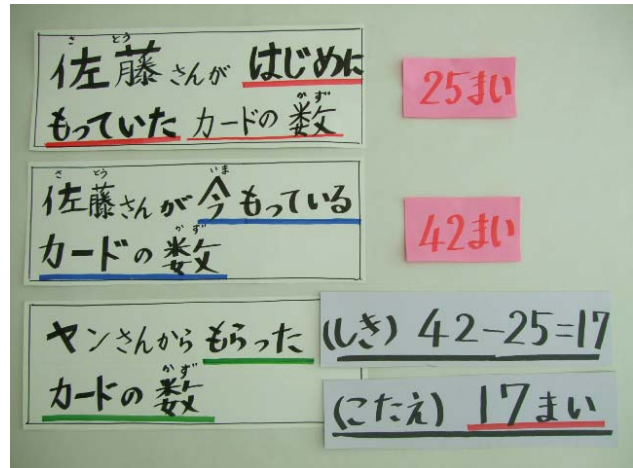 佐藤さんが はじめに
もっていた カードの数
25まい
佐藤さんが今もっている
カードの数
42まい
ヤンさんからもらった
カードの数
(しき) 42-25=17
(こたえ) 17まい